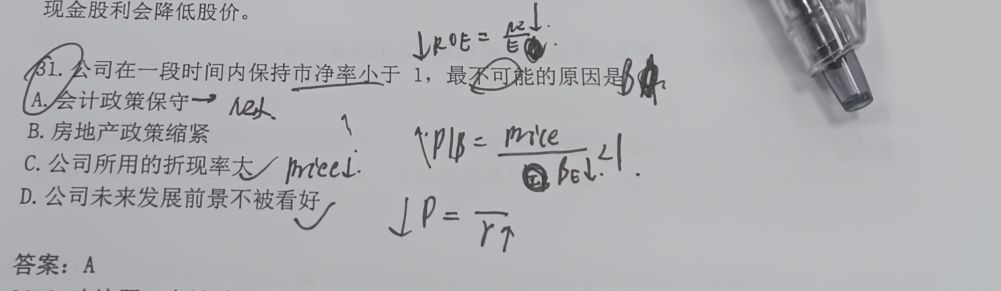 现金股利会降低股价。
↓ROE = NI↓ / E
31. 公司在一段时间内保持市净率小于 1，最不可能的原因是 B
A. 会计政策保守→
B. 房地产政策缩紧
↑P/B = price / BE↓ <1.
C. 公司所用的折现率大✓ price↓.
D. 公司未来发展前景不被看好✓
↓P = — / r↑
答案：A